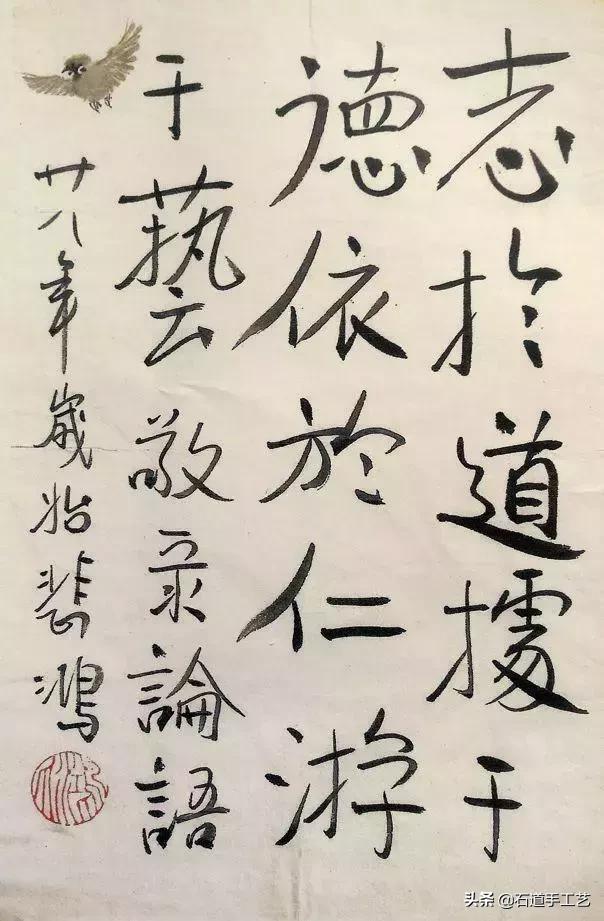 志扵道據于
德依於仁游
于藝敬录論語
廿八年歲始悲鴻
头条 @石道手工艺